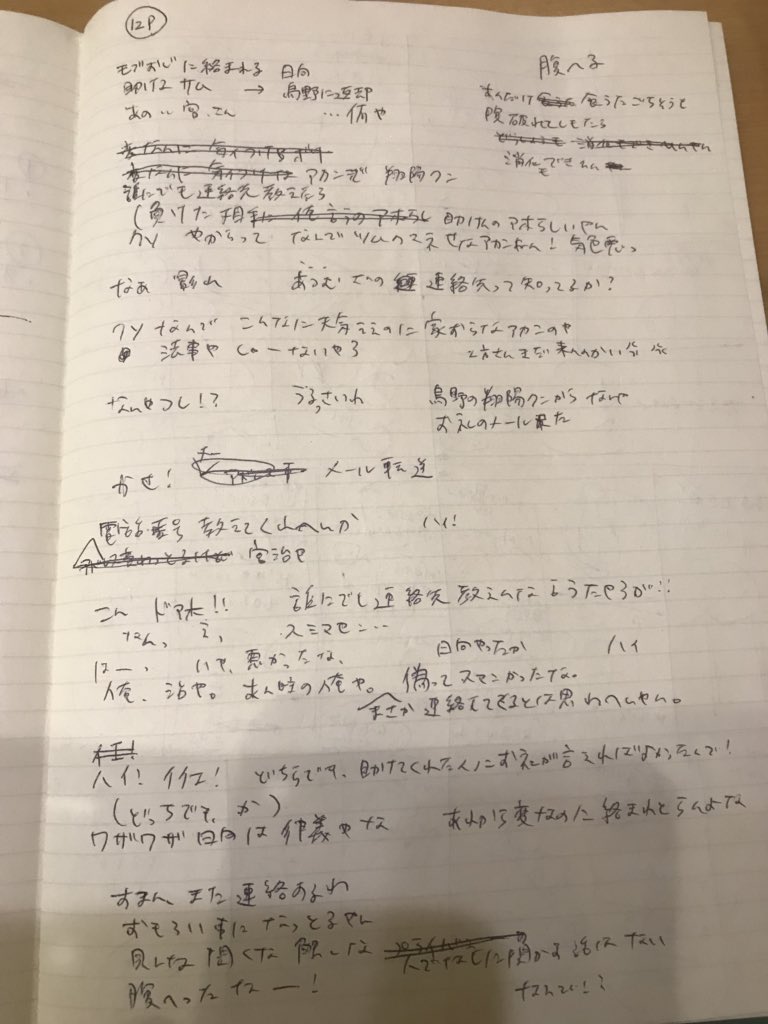 12P
モブおじに絡まれる 日向
助けな サム → 烏野に返却
あの…宮、さん …侑や
腹へる
あんだけ 食うたごちそうも
腹破れてしもたら
消化もできへん
アカンで 翔陽クン
誰にでも連絡先教えたら
(負けた相手に 助けんのアホらしいやん
クソ やからって なんでツムのマネせなアカンねん! 気色悪っ
なあ 影山 あつむさんの連絡先って知ってるか?
クソ なんで こんなに天気ええのに家おらなアカンのや
法事や しゃーないやろ
なんやコレ!? うるっさいわ 烏野の翔陽クンから なんや
お礼のメール来た
かせ! メール転送
電話番号 教えてくれへんか ハイ!
宮治や
こん ドアホ!! 誰にでも連絡先教えんな言うたやろが!!
なんっ、え、 スミマセン…
はー、 いや、悪かったな、 日向やったか ハイ
俺、治や。あん時の俺や。 偽ってスマンかったな。
まさか 連絡してくるとは思わへんやん。
ハイ! イイエ! どちらでも、助けてくれた人にお礼が言えればよかったんで!
(どっちでも、か)
ワザワザ 日向は 律義やな あれから変なのに絡まれとらんよな
すまん、また連絡するわ
おもろい事になっとるやん
見んな 聞くな 触んな 人でなしに聞かす話はない
腹へったなー! なんで!?